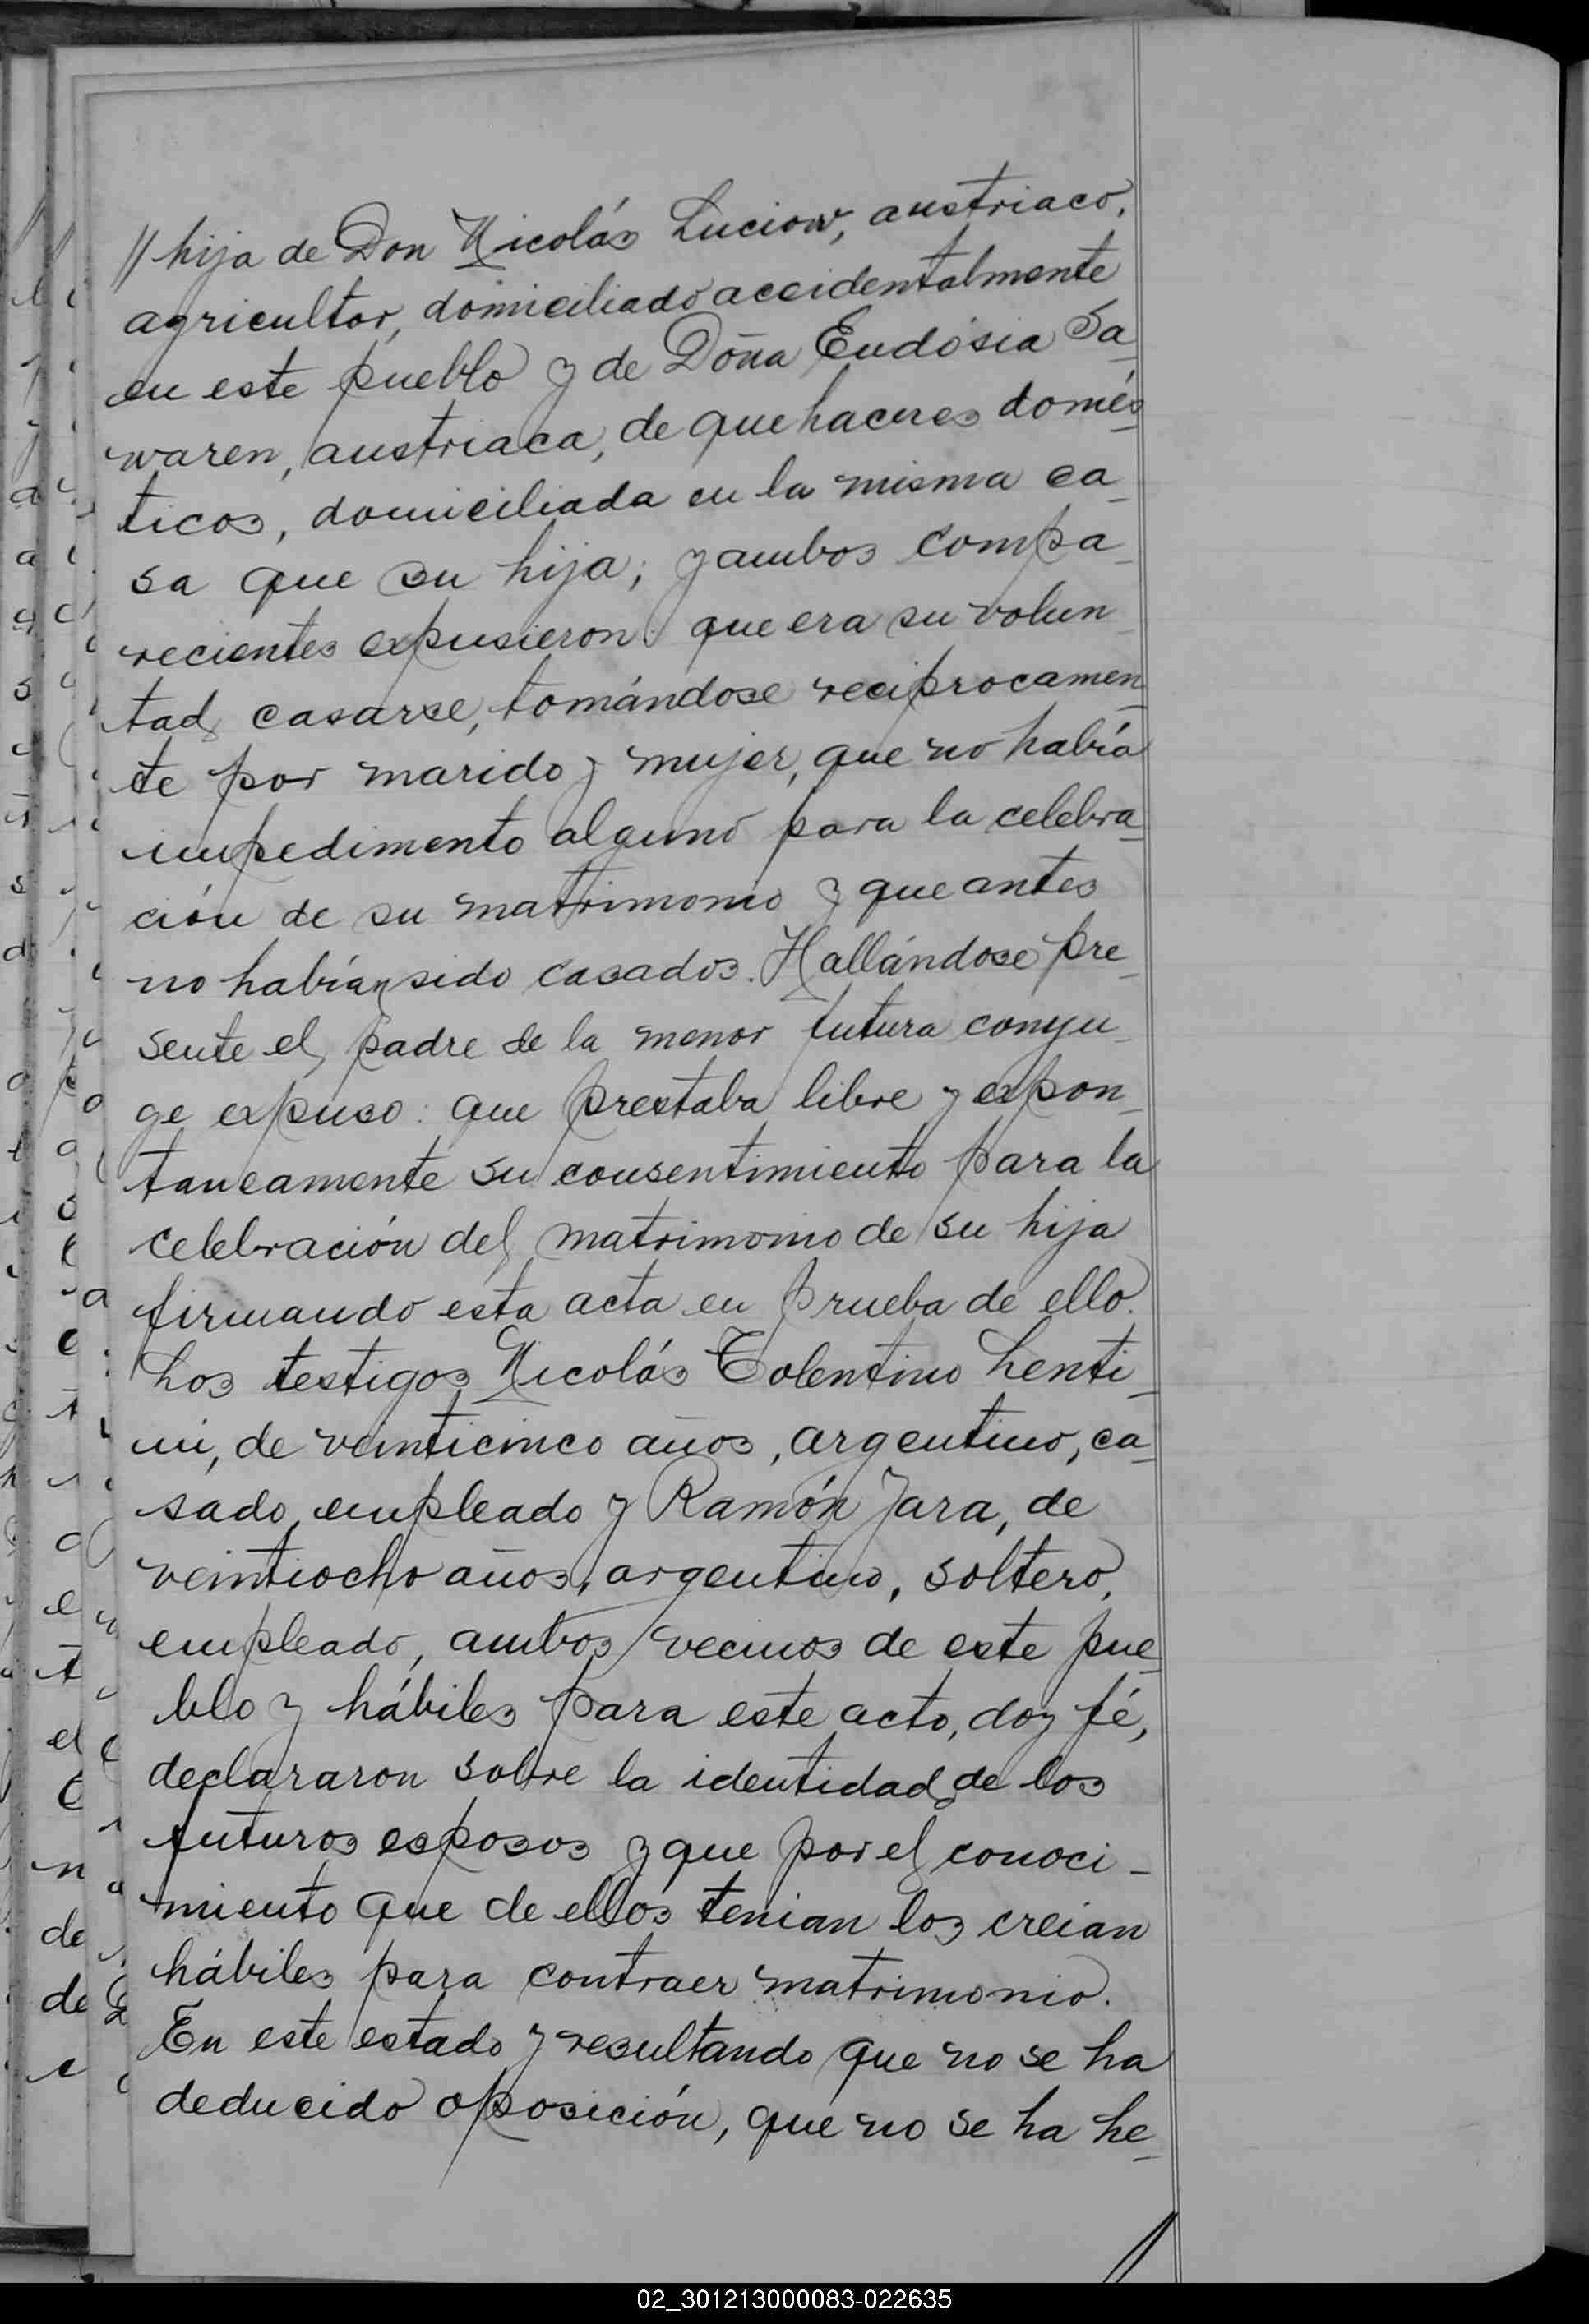 // hija de Don Nicolás Luciow, austriaco,
agricultor, domiciliado accidentalmente
en este pueblo y de Doña Eudosia Sa_
waren, austriaca, de quehaceres domés_
ticos, domiciliada en la misma ca_
sa que su hija; y ambos compa_
recientes expusieron: que era su volun_
tad casarse, tomándose reciprocamen_
te por marido y mujer, que no había
impedimento alguno para la celebra_
ción de su matrimonio y que antes
no habían sido casados. Hallándose pre_
sente el padre de la menor futura conyu_
ge expuso: que prestaba libre y expon_
taneamente su consentimiento para la
celebración del matrimonio de su hija
firmando esta acta en prueba de ello.
Los testigos Nicolás Tolentino Lenti_
ni, de veinticinco años, argentino, ca_
sado, empleado y Ramón Jara, de
veintiocho años, argentino, soltero,
empleado, ambos vecinos de este pue_
blo y hábiles para este acto, doy fé,
declararon sobre la identidad de los
futuros esposos y que por el conoci_
miento que de ellos tenian los creian
hábiles para contraer matrimonio.
En este estado y resultando que no se ha
deducido oposición, que no se ha he_
//
02_301213000083-022635